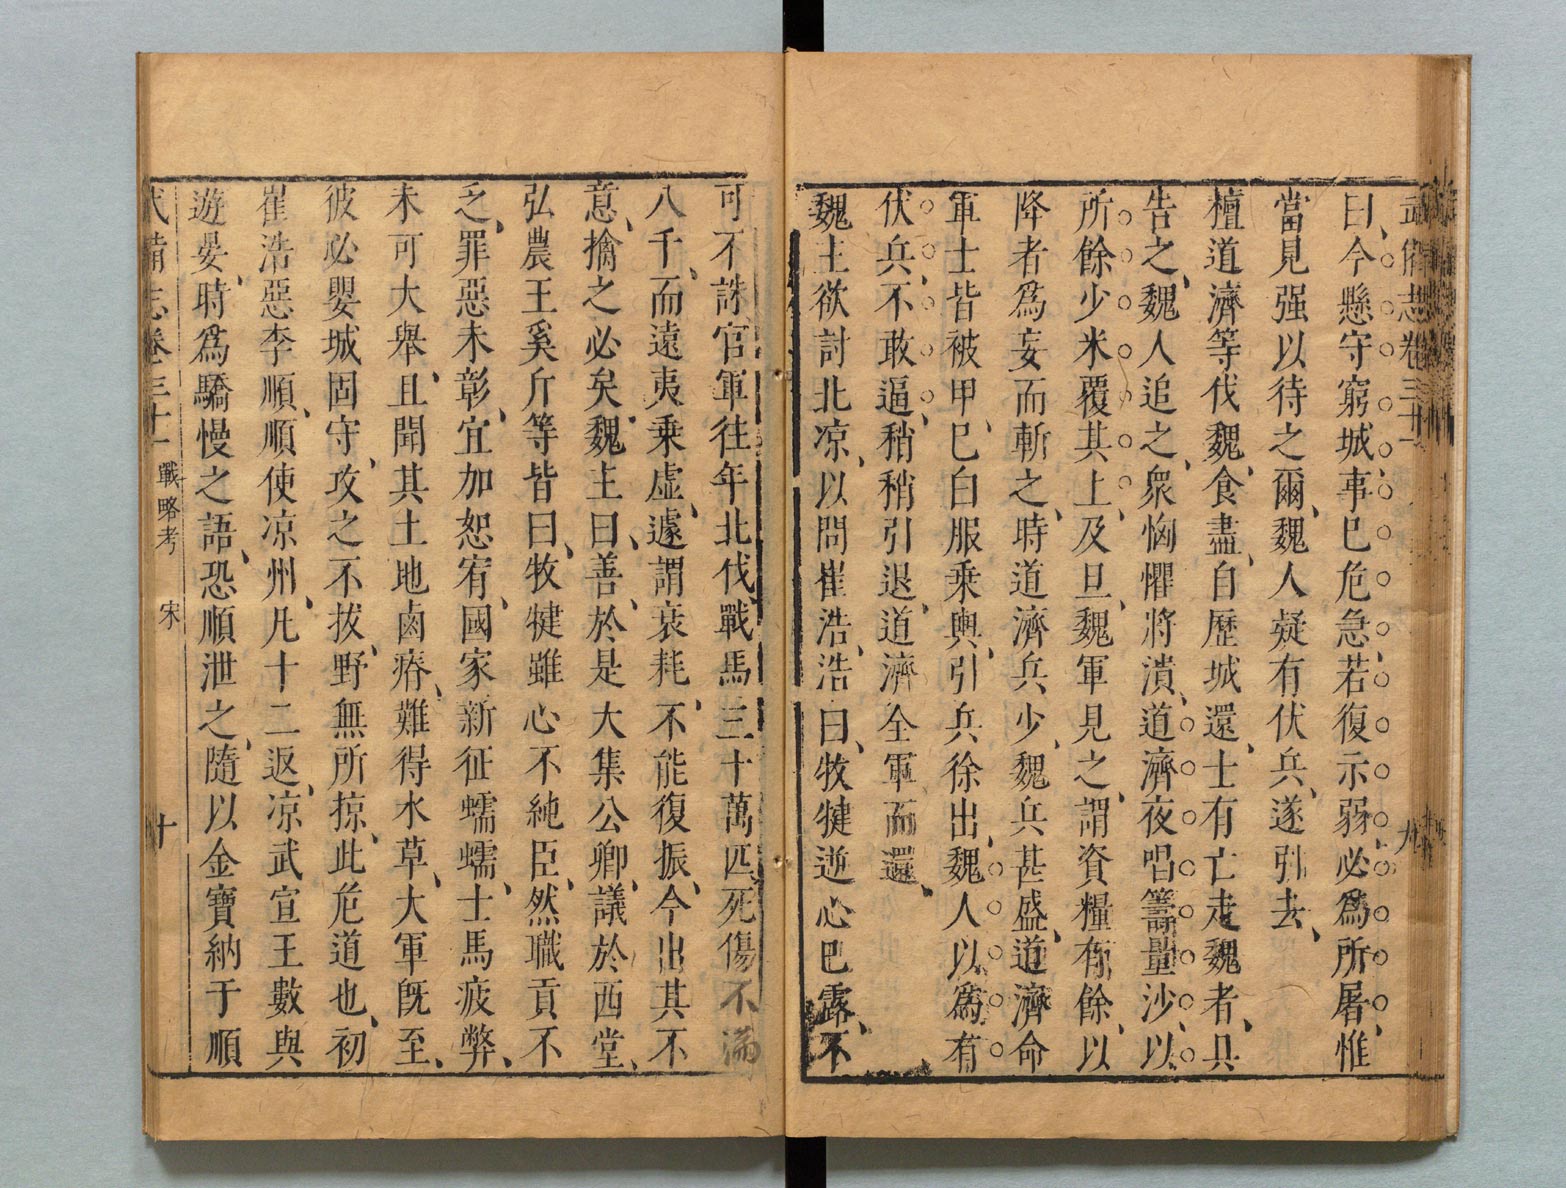 武備志卷三十一 九
曰今懸守窮城事已危急若復示弱必爲所屠惟
當見强以待之爾魏人疑有伏兵遂引去
檀道濟等伐魏食盡自歷城還士有亡走魏者具
告之魏人追之衆恟懼將潰道濟夜唱籌量沙以
所餘少米覆其上及旦魏軍見之謂資糧有餘以
降者爲妄而斬之時道濟兵少魏兵甚盛道濟命
軍士皆被甲已白服乗輿引兵徐出魏人以爲有
伏兵不敢逼稍稍引退道濟全軍而還
魏主欲討北凉以問崔浩浩曰牧犍逆心已露不
可不誅官軍往年北伐戰馬三十萬匹死傷不滿
八千而遠夷乗虛遽謂衰耗不能復振今出其不
意擒之必矣魏主曰善於是大集公卿議於西堂
弘農王奚斤等皆曰牧犍雖心不純臣然職貢不
乏罪惡未彰宜加恕宥國家新征蠕蠕士馬疲弊
未可大舉且聞其土地鹵瘠難得水草大軍旣至
彼必嬰城固守攻之不拔野無所掠此危道也初
崔浩惡李順順使凉州凡十二返凉武宣王數與
遊宴時爲驕慢之語恐順泄之隨以金寶納于順
武備志卷三十一 戰略考 宋 十